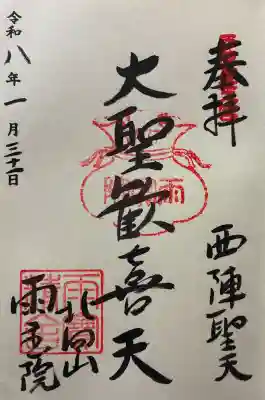 奉拝
西陣聖天
大聖歓喜天
北向山
雨宝院
令和八年一月三十一日